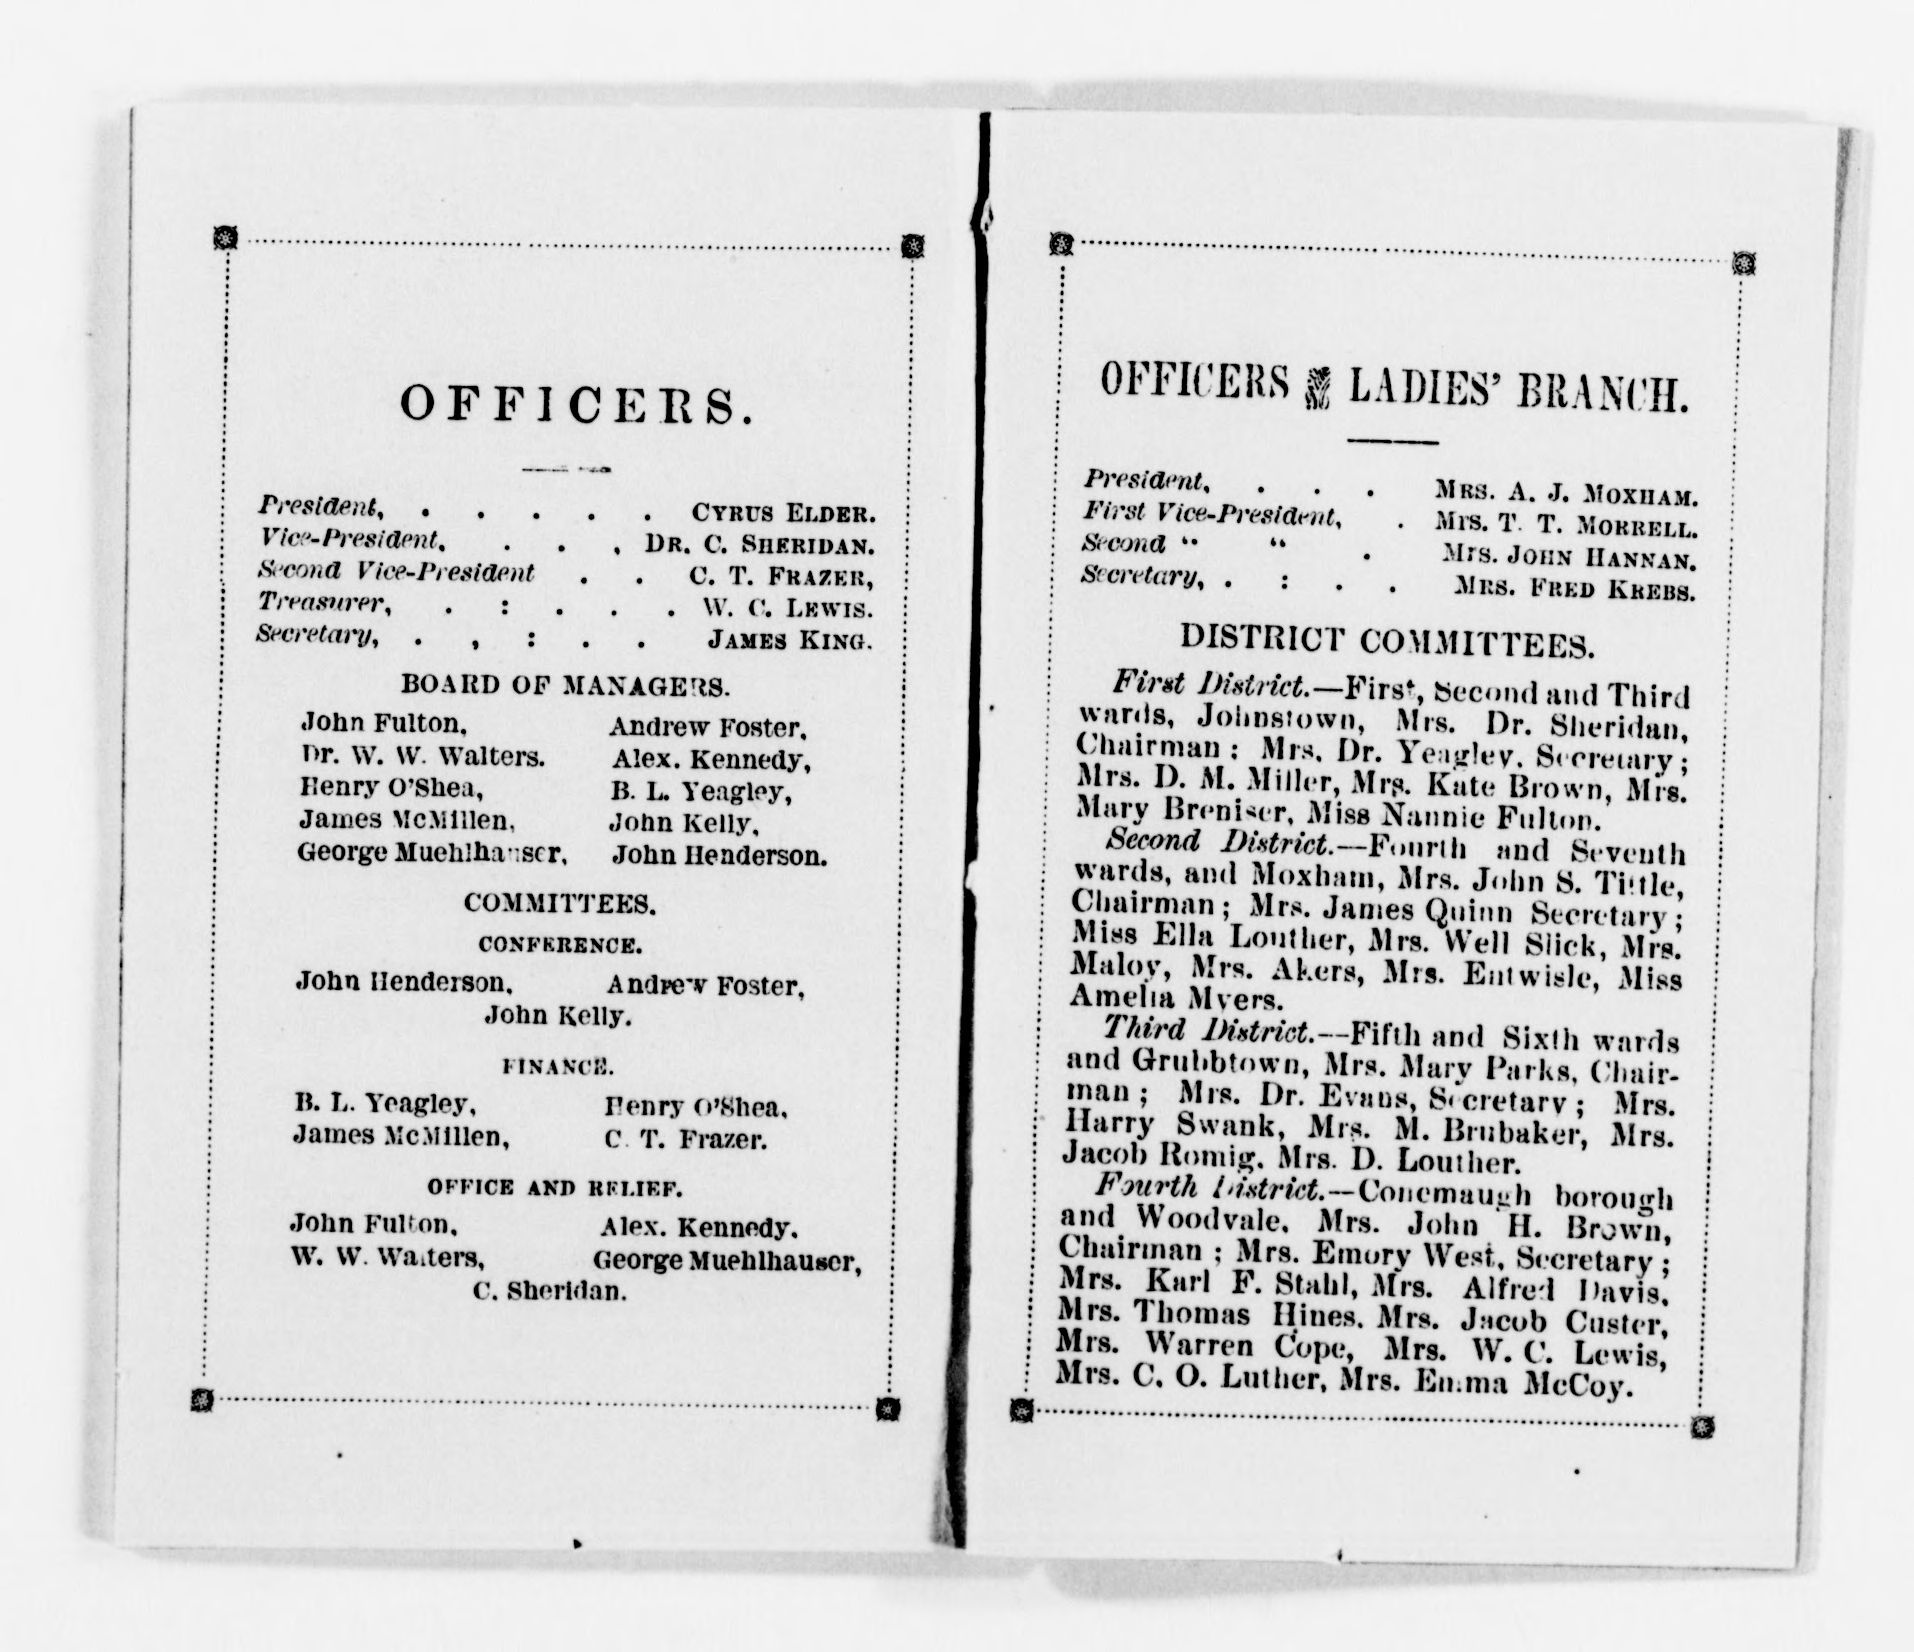 OFFICERS.
President, . . . . . CYRUS ELDER.
Vice-President. . . . DR. C. SHERIDAN.
Second Vice-President . . C. T. FRAZER,
Treasurer, . : . . . W. C. LEWIS.
Secretary, . , : . . JAMES KING.
BOARD OF MANAGERS.
John Fulton, Andrew Foster,
Dr. W. W. Walters. Alex. Kennedy,
Henry O'Shea, B. L. Yeagley,
James McMillen, John Kelly,
George Muehlhauser, John Henderson.
COMMITTEES.
CONFERENCE.
John Henderson, Andrew Foster,
John Kelly.
FINANCE.
B. L. Yeagley, Henry O'Shea,
James McMillen, C. T. Frazer.
OFFICE AND RELIEF.
John Fulton, Alex. Kennedy,
W. W. Walters, George Muehlhauser,
C. Sheridan.
OFFICERS LADIES' BRANCH.
President, . . . MRS. A. J. MOXHAM.
First Vice-President, . Mrs. T. T. MORRELL.
Second “ “ . Mrs. JOHN HANNAN.
Secretary, . : . . MRS. FRED KREBS.
DISTRICT COMMITTEES.
First District.—First, Second and Third
wards, Johnstown, Mrs. Dr. Sheridan,
Chairman; Mrs. Dr. Yeagley, Secretary;
Mrs. D. M. Miller, Mrs. Kate Brown, Mrs.
Mary Breniser, Miss Nannie Fulton.
Second District.—Fourth and Seventh
wards, and Moxham, Mrs. John S. Tittle,
Chairman; Mrs. James Quinn Secretary;
Miss Ella Louther, Mrs. Well Slick, Mrs.
Maloy, Mrs. Akers, Mrs. Entwisle, Miss
Amelia Myers.
Third District.—Fifth and Sixth wards
and Grubbtown, Mrs. Mary Parks, Chair-
man; Mrs. Dr. Evans, Secretary; Mrs.
Harry Swank, Mrs. M. Brubaker, Mrs.
Jacob Romig, Mrs. D. Louther.
Fourth District.—Conemaugh borough
and Woodvale, Mrs. John H. Brown,
Chairman; Mrs. Emory West, Secretary;
Mrs. Karl F. Stahl, Mrs. Alfred Davis,
Mrs. Thomas Hines, Mrs. Jacob Custer,
Mrs. Warren Cope, Mrs. W. C. Lewis,
Mrs. C. O. Luther, Mrs. Emma McCoy.